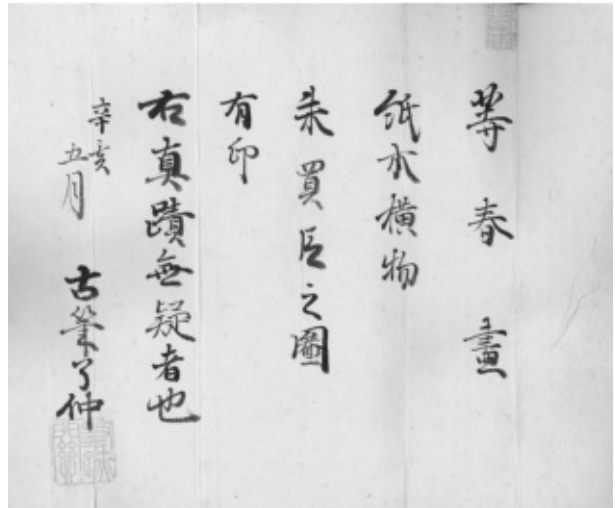 等春畫
紙水横物
朱買臣之圖
有印
右真蹟無疑者也
辛亥
五月
古筆了仲